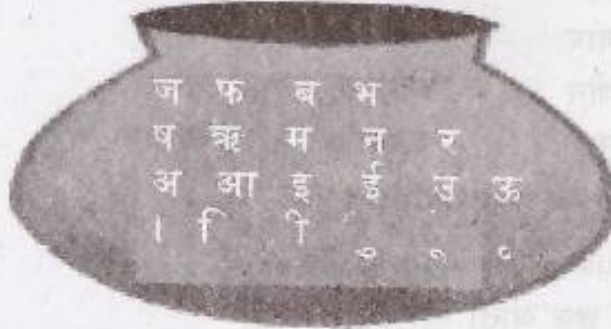 ज फ ब भ
ष ऋ म न र
अ आ इ ई उ ऊ
। ि ी ु ू ृ